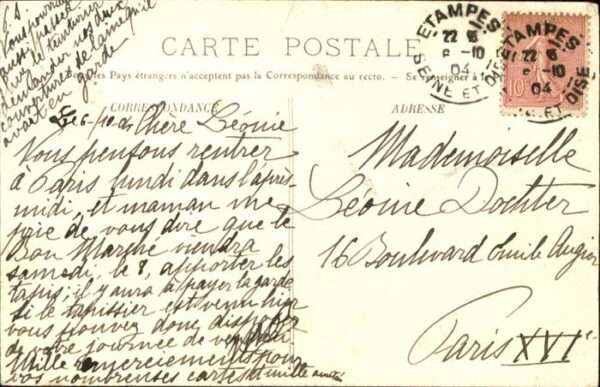 P.S.
Vous pourriez
aussi passer
chez le teinturier
demander nos deux
couvertures de laine qu'il
avait en
garde
CARTE POSTALE
les Pays étrangers n'acceptent pas la Correspondance au recto. — Se renseigner à
CORRESPONDANCE
ADRESSE
ETAMPES
22
6-10
04
SEINE ET OISE
ETAMPES
22
6-10
04
ET OISE
10
Le 6/10 Chère Léonie
Nous pensons rentrer
à Paris lundi dans l'après
midi, et maman me
prie de vous dire que le
Bon Marché viendra
samedi, le 8, apporter les
tapis; il y aura à payer la garde
si le tapissier est venu hier
vous pouvez donc disposer
de votre journée de
Mille remerciements pour
vos nombreuses cartes et mille
Mademoiselle
Léonie Dochter
16 Boulevard Emile Augier
Paris XVIe